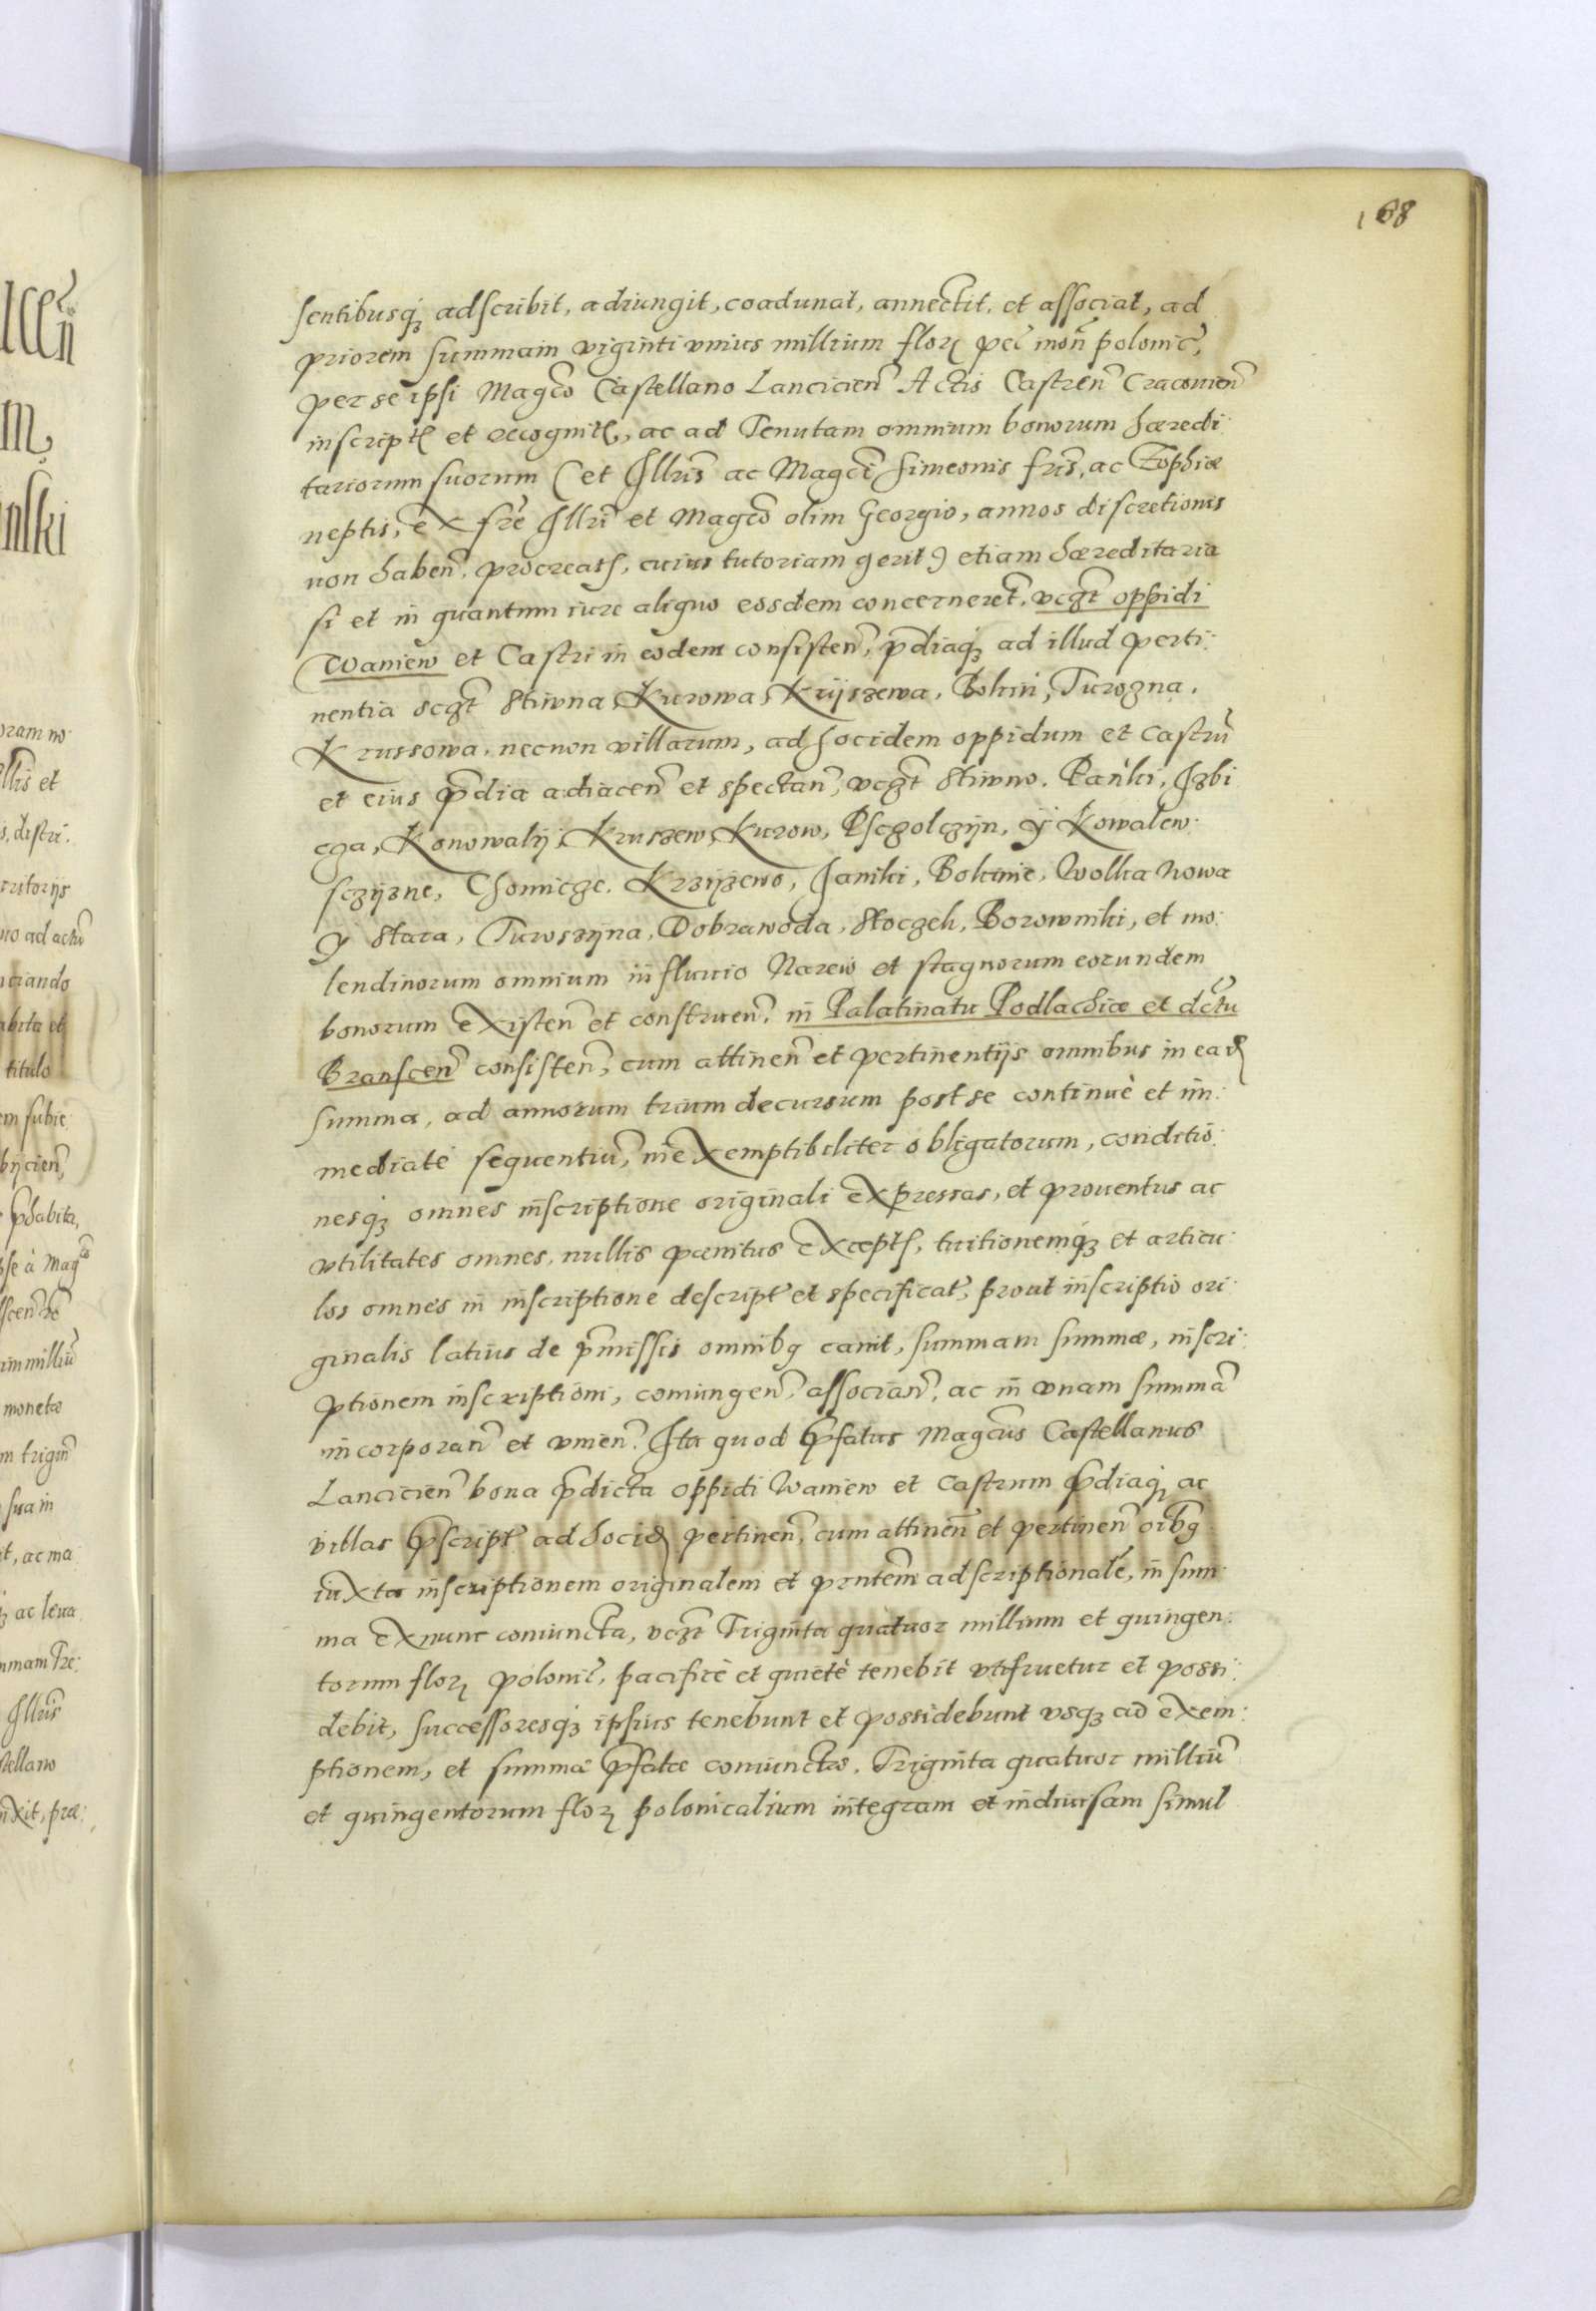 168
sentibusq₃ adscribit, adiungit, coadunat, annectit, et associat, ad
priorem summam viginti vnius millium flor pec mon polonic,
per se ipsi Magco Castellano Lancicien Actis Castren Cracouien
inscript et recognit, ac ad Tenutam omnium bonorum hæredi
tariorum suorum (et Illris ac Magci Simeonis fris, ac Zophiæ
neptis, ex fre Illri et Magco olim Georgio, annos discretionis
non haben, procreat, cuius tutoriam gerit) etiam hæreditaria
si et in quantum iure aliquo eosdem concerneret, vcgt oppidi
Waniew et Castri in eodem consisten, pdiaq₃ ad illud perti
nentia scgt Stiwna, Kurowa, Krijszewa, Bokin, Turogna,
Krussowa, necnon villarum, ad hocidem oppidum et Castru
et eius pdia adiacen et spectan, vcgt Stiwno, Pańki, Izbi
cza, Konowalij, Kruszew, Kurow, Psczolczijn, ij Kowalew
sczijzne, Chomicze, Krzijzewo, Janiki, Bokinie, Wolka Nowa
ij Stara, Turoszijna, Dobrawoda, Stoczek, Borowniki, et mo
lendinorum omnium in fluuio Narew et stagnorum eorundem
bonorum existen et construen, in Palatinatu Podlachiæ et dctu
Branscen consisten, cum attinen et pertinentijs omnibus in ead
summa, ad annorum trium decursum post se continuè et im
mediatè sequentiu, inexemptibiliter obligatorum, conditio
nesq₃ omnes inscriptione originali expressas, et prouentus ac
vtilitates omnes, nullis pœnitus except, tuitionemq₃ et articu
los omnes in inscriptione descript et specificat, prout inscriptio ori
ginalis latius de pmissis omnibq canit, summam summæ, inscri
ptionem inscriptioni, coniungen, associan, ac in vnam summa
incorporan et vnien. Ita quod pfatus Magcus Castellanus
Lancicien bona pdicta oppidi Waniew et Castrum pdiaq ac
villas pscript ad hocid pertinen, cum attinen et pertinen oibq
iuxta inscriptionem originalem et pntem adscriptionale, in sum
ma exnunc coniuncta, vcgt Triginta quatuor millium et quingen
torum flor polonic, pacificè et quietè tenebit vtifruetur et possi
debit, successoresq₃ ipsius tenebunt et possidebunt vsq₃ ad exem
ptionem, et summæ pfatæ coniunctæ, Triginta quatuor milliu
et quingentorum flor polonicalium integram et indiuisam simul